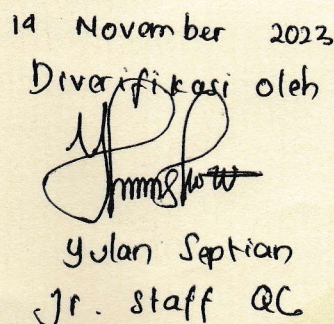 14 November 2023
Diverifikasi oleh
Yulan Septian
Jr. Staff QC